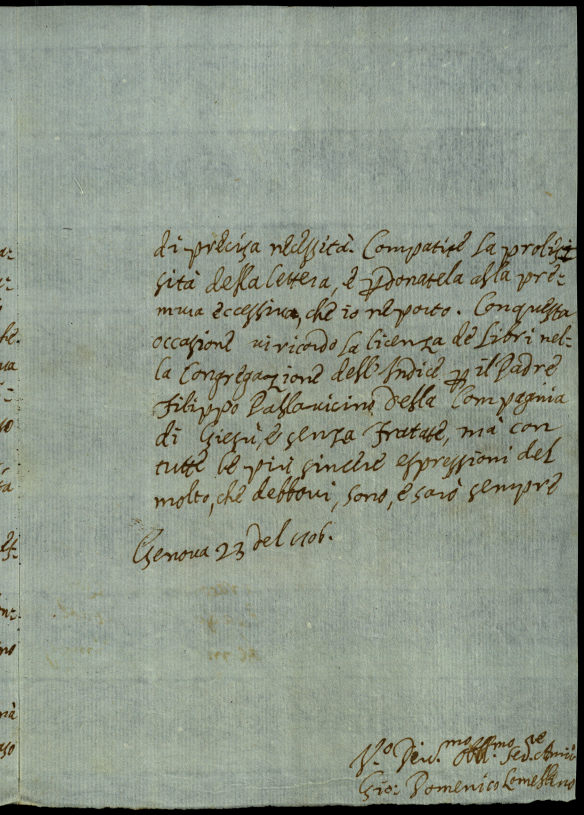 di precisa necessità. Compatite la proliſ-
sità della lettera, e ꝑdonatela alla pre-
mura eccessiva, che io ne porto. Con questa
occasione vi ricordo la licenza de Libri nel-
la Congregazione dell'Indice ꝑ il Padre
Filippo Pallavicino della Compagnia
di Giesù, e senza Fratate, mà con
tutte le più sincere espressioni del
molto, che debbovi, sono, e sarò sempre
Genova 23 del 1706.
V.º Dev.mo Obbl.mo Ser.re Amic
Gio: Domenico Lomellino